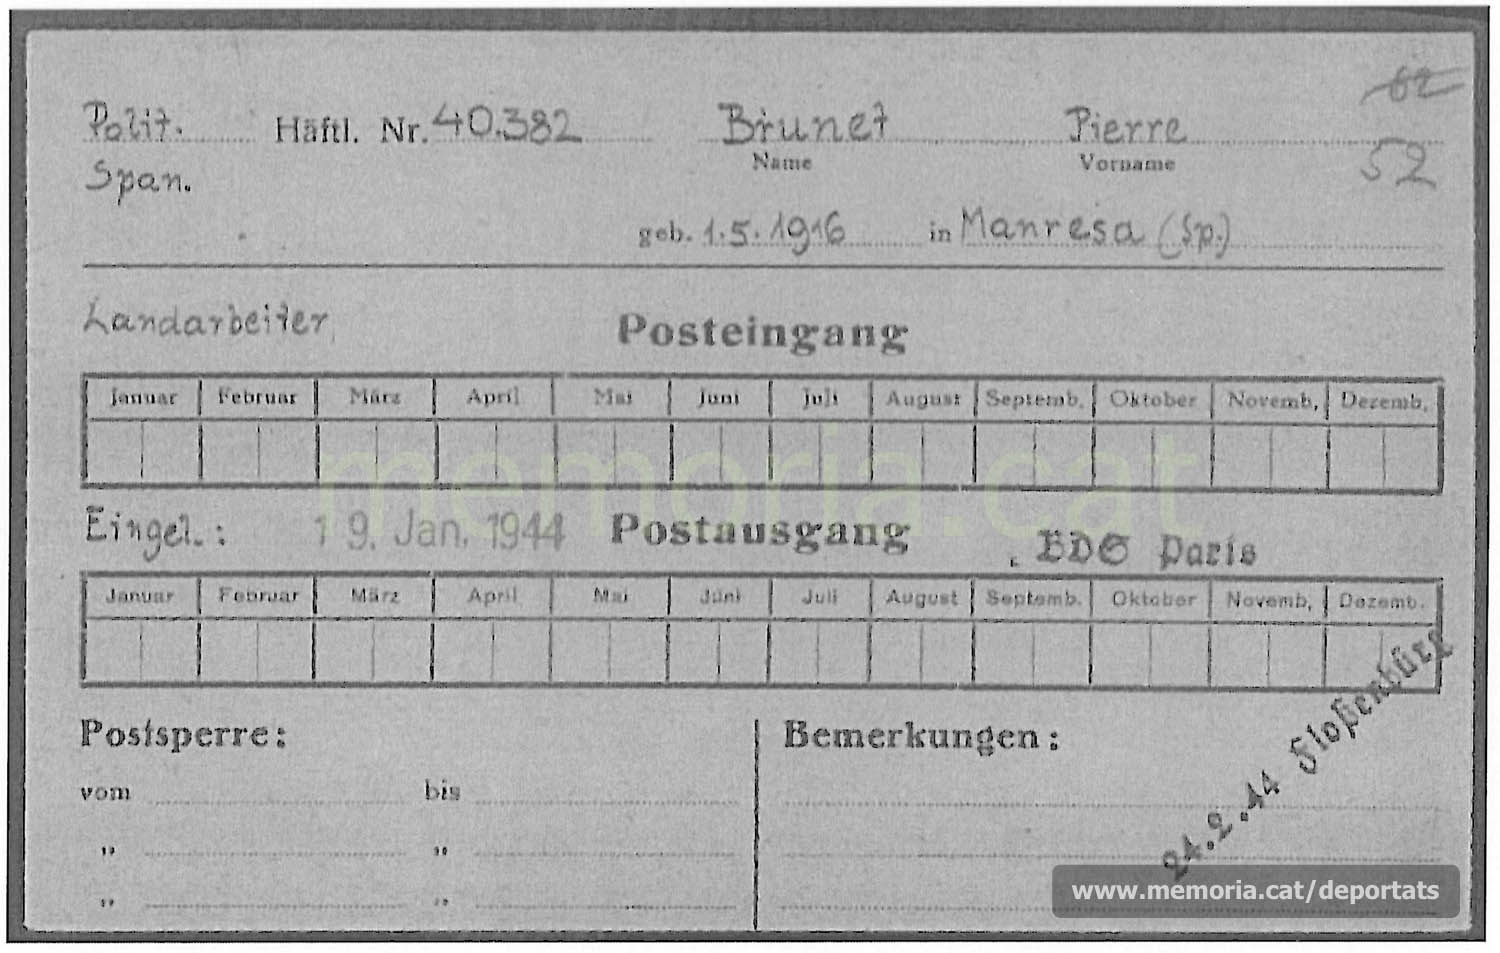 62
Polit. Häftl. Nr. 40.382 Brunet Pierre
Name Vorname
Span. 52
geb. 1.5.1916 in Manresa (Sp.)
Landarbeiter
Posteingang
Januar Februar März April Mai Juni Juli August Septemb. Oktober Novemb. Dezemb.
memoria.cat
Eingel.: 19. Jan. 1944 Postausgang BDS Paris
Januar Februar März April Mai Juni Juli August Septemb. Oktober Novemb. Dezemb.
Postsperre: Bemerkungen:
vom bis
" "
" "
24.2.44 Floßenbürg
www.memoria.cat/deportats